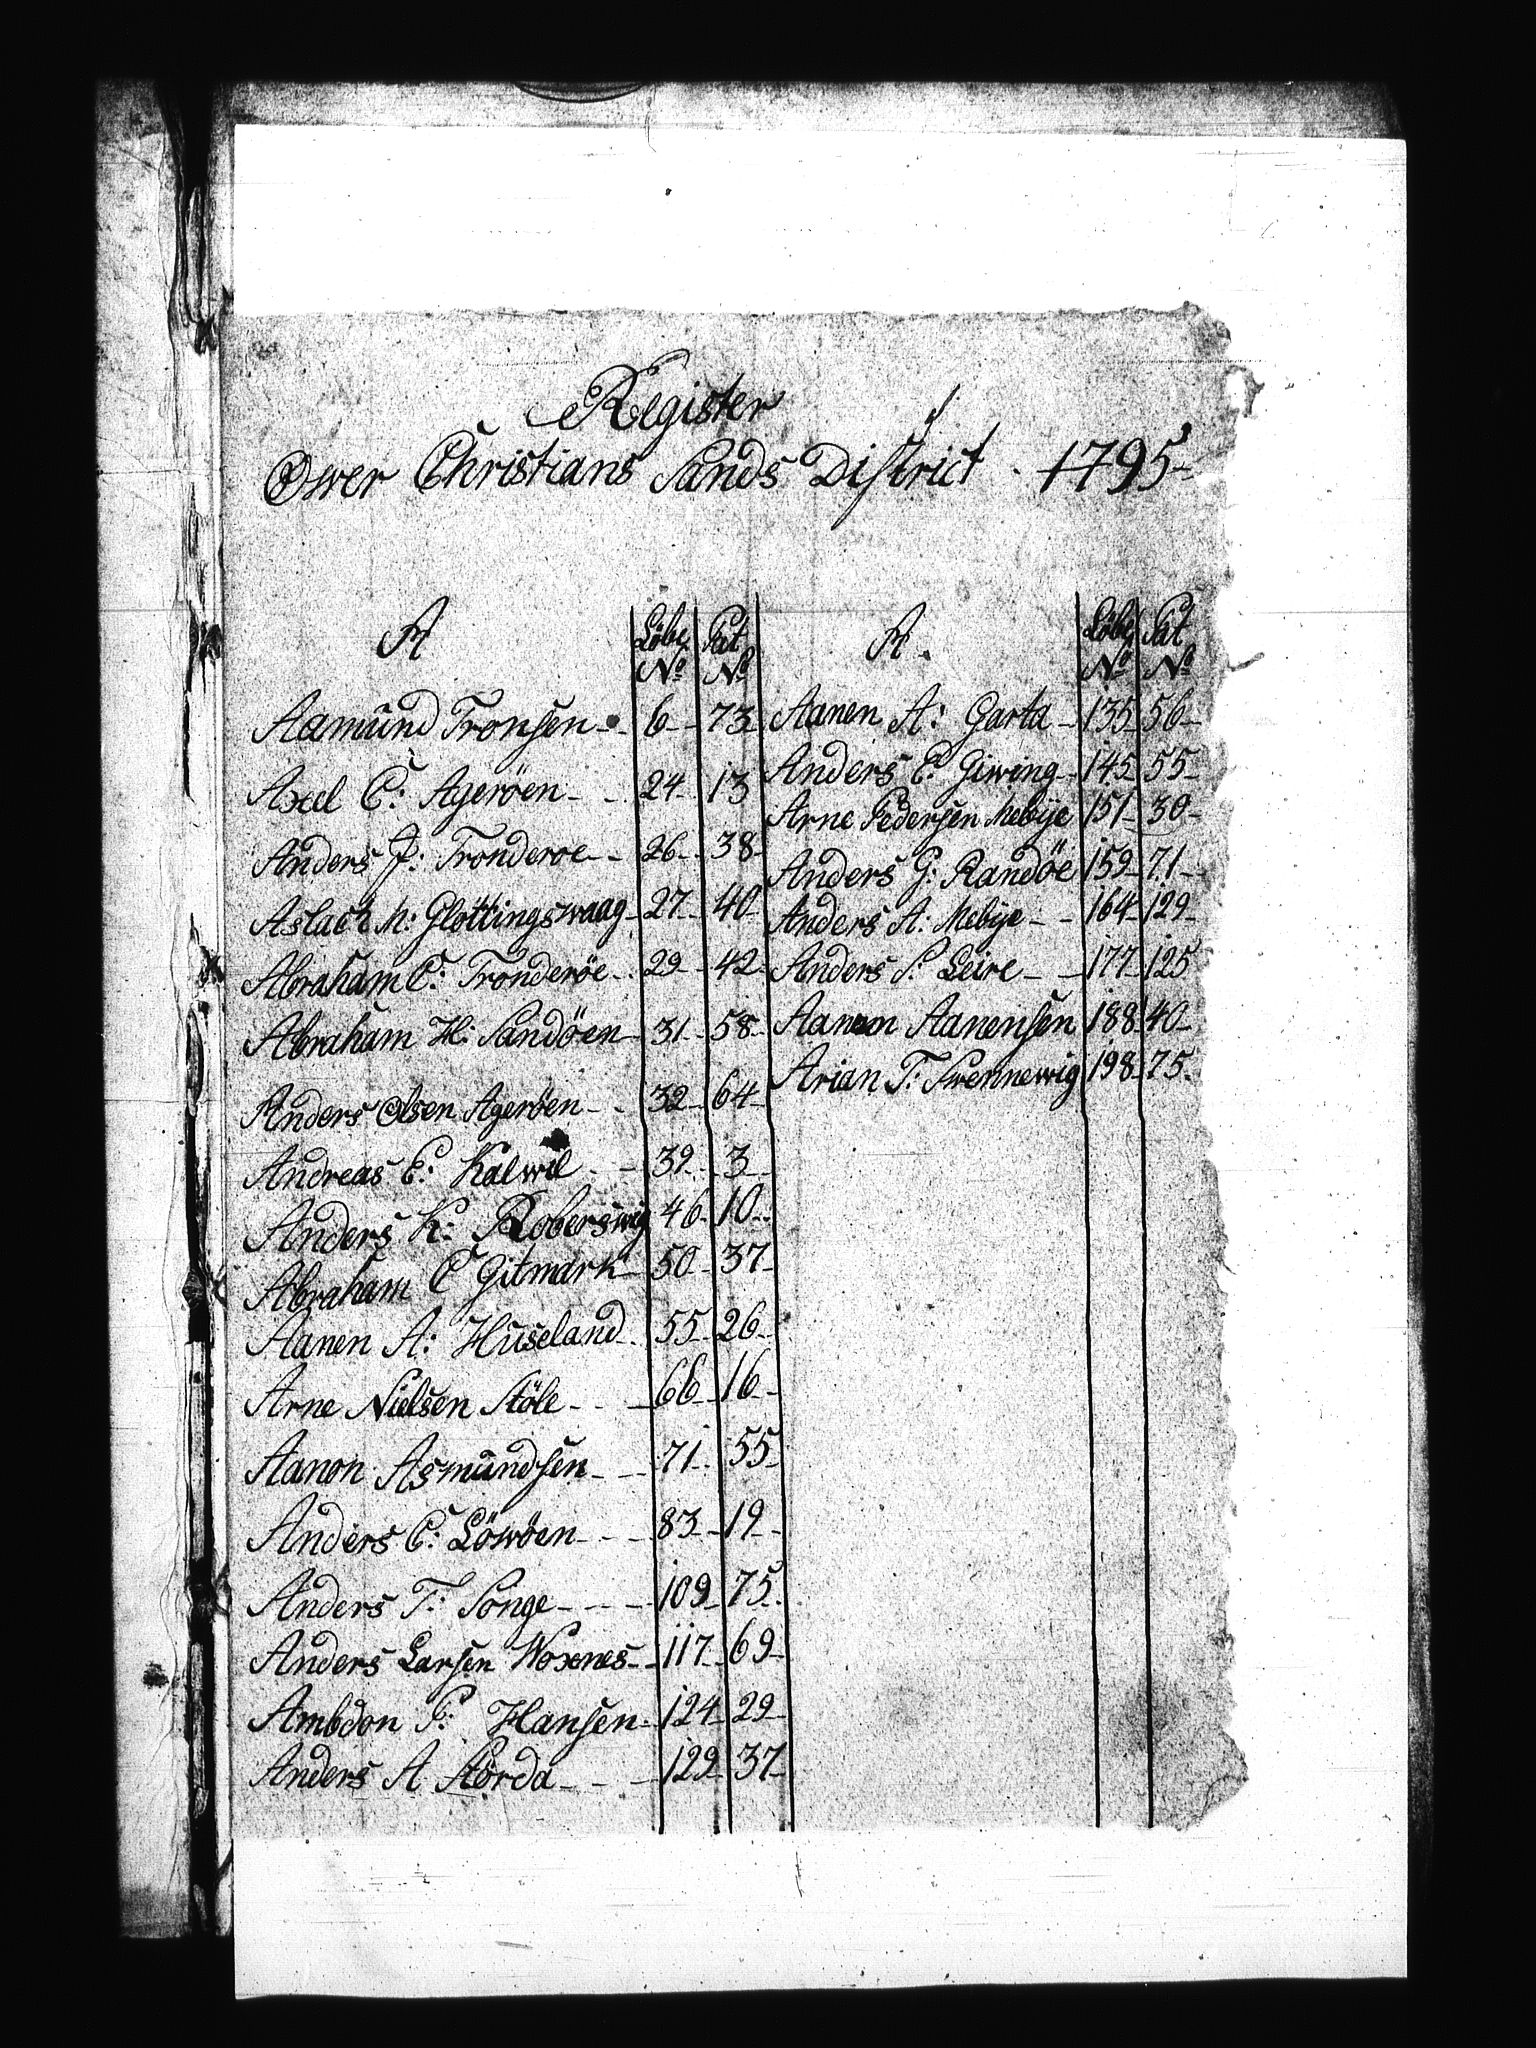 Register
Over Christians Sands District . 1795
A Löbe No Pat No
Aamund Tronsen 6 73
Axel C: Agerøen 24 13
Anders J: Tronderoe 26 38
Aslach M: Glottingswaag 27 40
Abraham C: Tronderöe 29 42
Abraham H: Sandöen 31 58
Anders Olsen Ageröen 32 64
Andreas E: Kalwil 39 3
Anders K: Roberswig 46 10
Abraham C Gitmark 50 37
Aanen A: Huseland 55 26
Arne Nielsen Stöle 66 16
Aanon Asmundsen 71 55
Anders C: Löwöen 83 19
Anders T: Songe 109 75
Anders Larsen Woxnes 117 69
Ambdon P: Hansen 124 29
Anders A Störda 129 37
A. Löbe No Pat No
Aanen A: Garta 135 56
Anders E: Giweng 145 55
Arne Pedersen Mebye 151 30
Anders G: Randöe 159 71
Anders A: Mebye 164 129
Anders S: Leire 177 125
Aanen Aanensen 188 40
Arian T: Swennewig 198 75